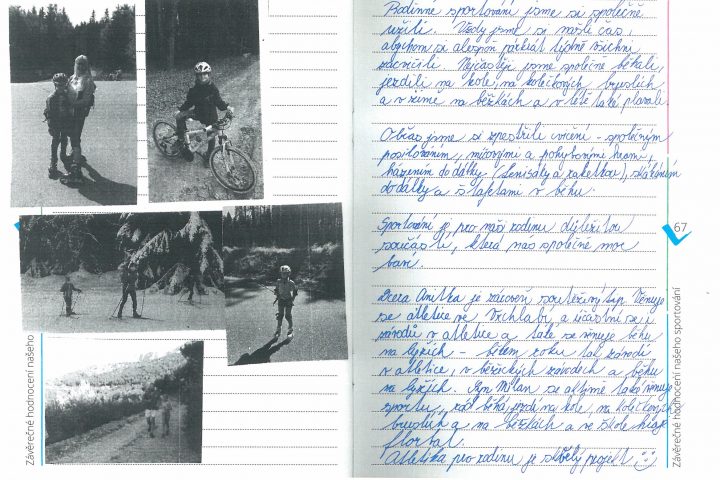 Závěrečné hodnocení našeho
Rodinné sportování jsme si společně
užili. Vždy jsme si našli čas,
abychom si alespoň párkrát týdně všichni
zacvičili. Nejčastěji jsme společně běhali,
jezdili na kole, na kolečkových bruslích
a v zimě na běžkách a v létě také plavali.
Občas jsme si zpestřili cvičení - společným
posilováním, míčovými a pohybovými hrami,
házením do dálky (tenisáky a raketkou), skákáním
do dálky a štafetami v běhu.
Sportování je pro naši rodinu důležitou
součástí, která nás společně moc
baví.
Dcera Anitka je zároveň soutěživý typ. Věnuje
se atletice ve Vrchlabí a účastní se i
závodů v atletice a také se věnuje běhu
na lyžích - během roku tak závodí
v atletice, v běžeckých závodech a běhu
na lyžích. Syn Milan se aktivně také věnuje
sportu, rád běhá, jezdí na kole, na kolečkových
bruslích a na běžkách a ve škole hraje
florbal.
Atletika pro rodinu je skvělý projekt
67
Závěrečné hodnocení našeho sportování